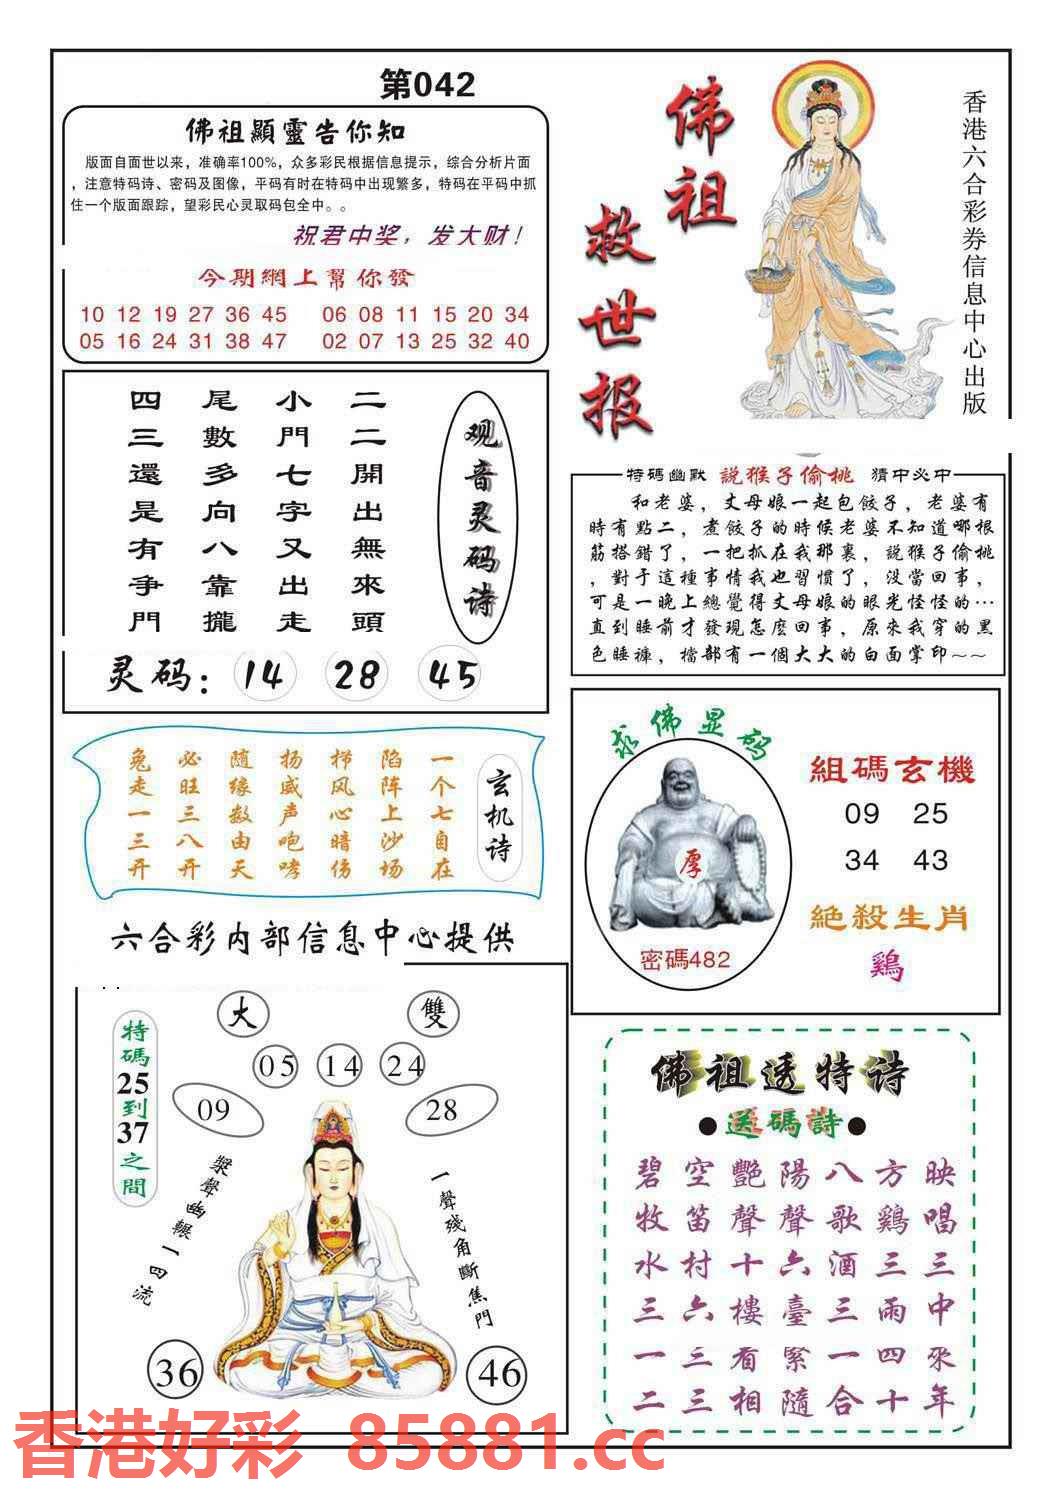 第042
佛祖顯靈告你知
版面自面世以来，准确率100%，众多彩民根据信息提示，综合分析片面
，注意特码诗、密码及图像，平码有时在特码中出现繁多，特码在平码中抓
住一个版面跟踪，望彩民心灵取码包全中。。
祝君中奖，发大财！
今期網上幫你發
10 12 19 27 36 45 06 08 11 15 20 34
05 16 24 31 38 47 02 07 13 25 32 40
佛祖
救世报
香港六合彩券信息中心出版
观音灵码诗
二二開出無來頭
小門七字又出走
尾數多向八靠攏
四三還是有爭門
灵码：14 28 45
特碼幽默 說猴子偷桃 猜中必中
和老婆，丈母娘一起包餃子，老婆有
時有點二，煮餃子的時候老婆不知道哪根
筋搭錯了，一把抓在我那裏，說猴子偷桃
，對于這種事情我也習慣了，没當回事，
可是一晚上總覺得丈母娘的眼光怪怪的…
直到睡前才發現怎麼回事，原來我穿的黑
色睡褲，檔部有一個大大的白面掌印~~
玄机诗
一个七自在
陷阵上沙场
梯风心暗伤
扬威声咆哮
随缘数由天
必旺三八开
兔走一三开
六合彩内部信息中心提供
求佛显码
厚
密碼482
組碼玄機
09 25
34 43
絕殺生肖
鷄
大 雙
05 14 24
09 28
特碼25到37之間
槳聲幽輾一四流
一聲殘角斷焦門
36 46
佛祖透特诗
●送碼詩●
碧空艷陽八方映
牧笛聲聲歌鷄唱
水村十六酒三三
三六樓臺三雨中
一三看緊一四來
二三相隨合十年
香港好彩 85881.cc